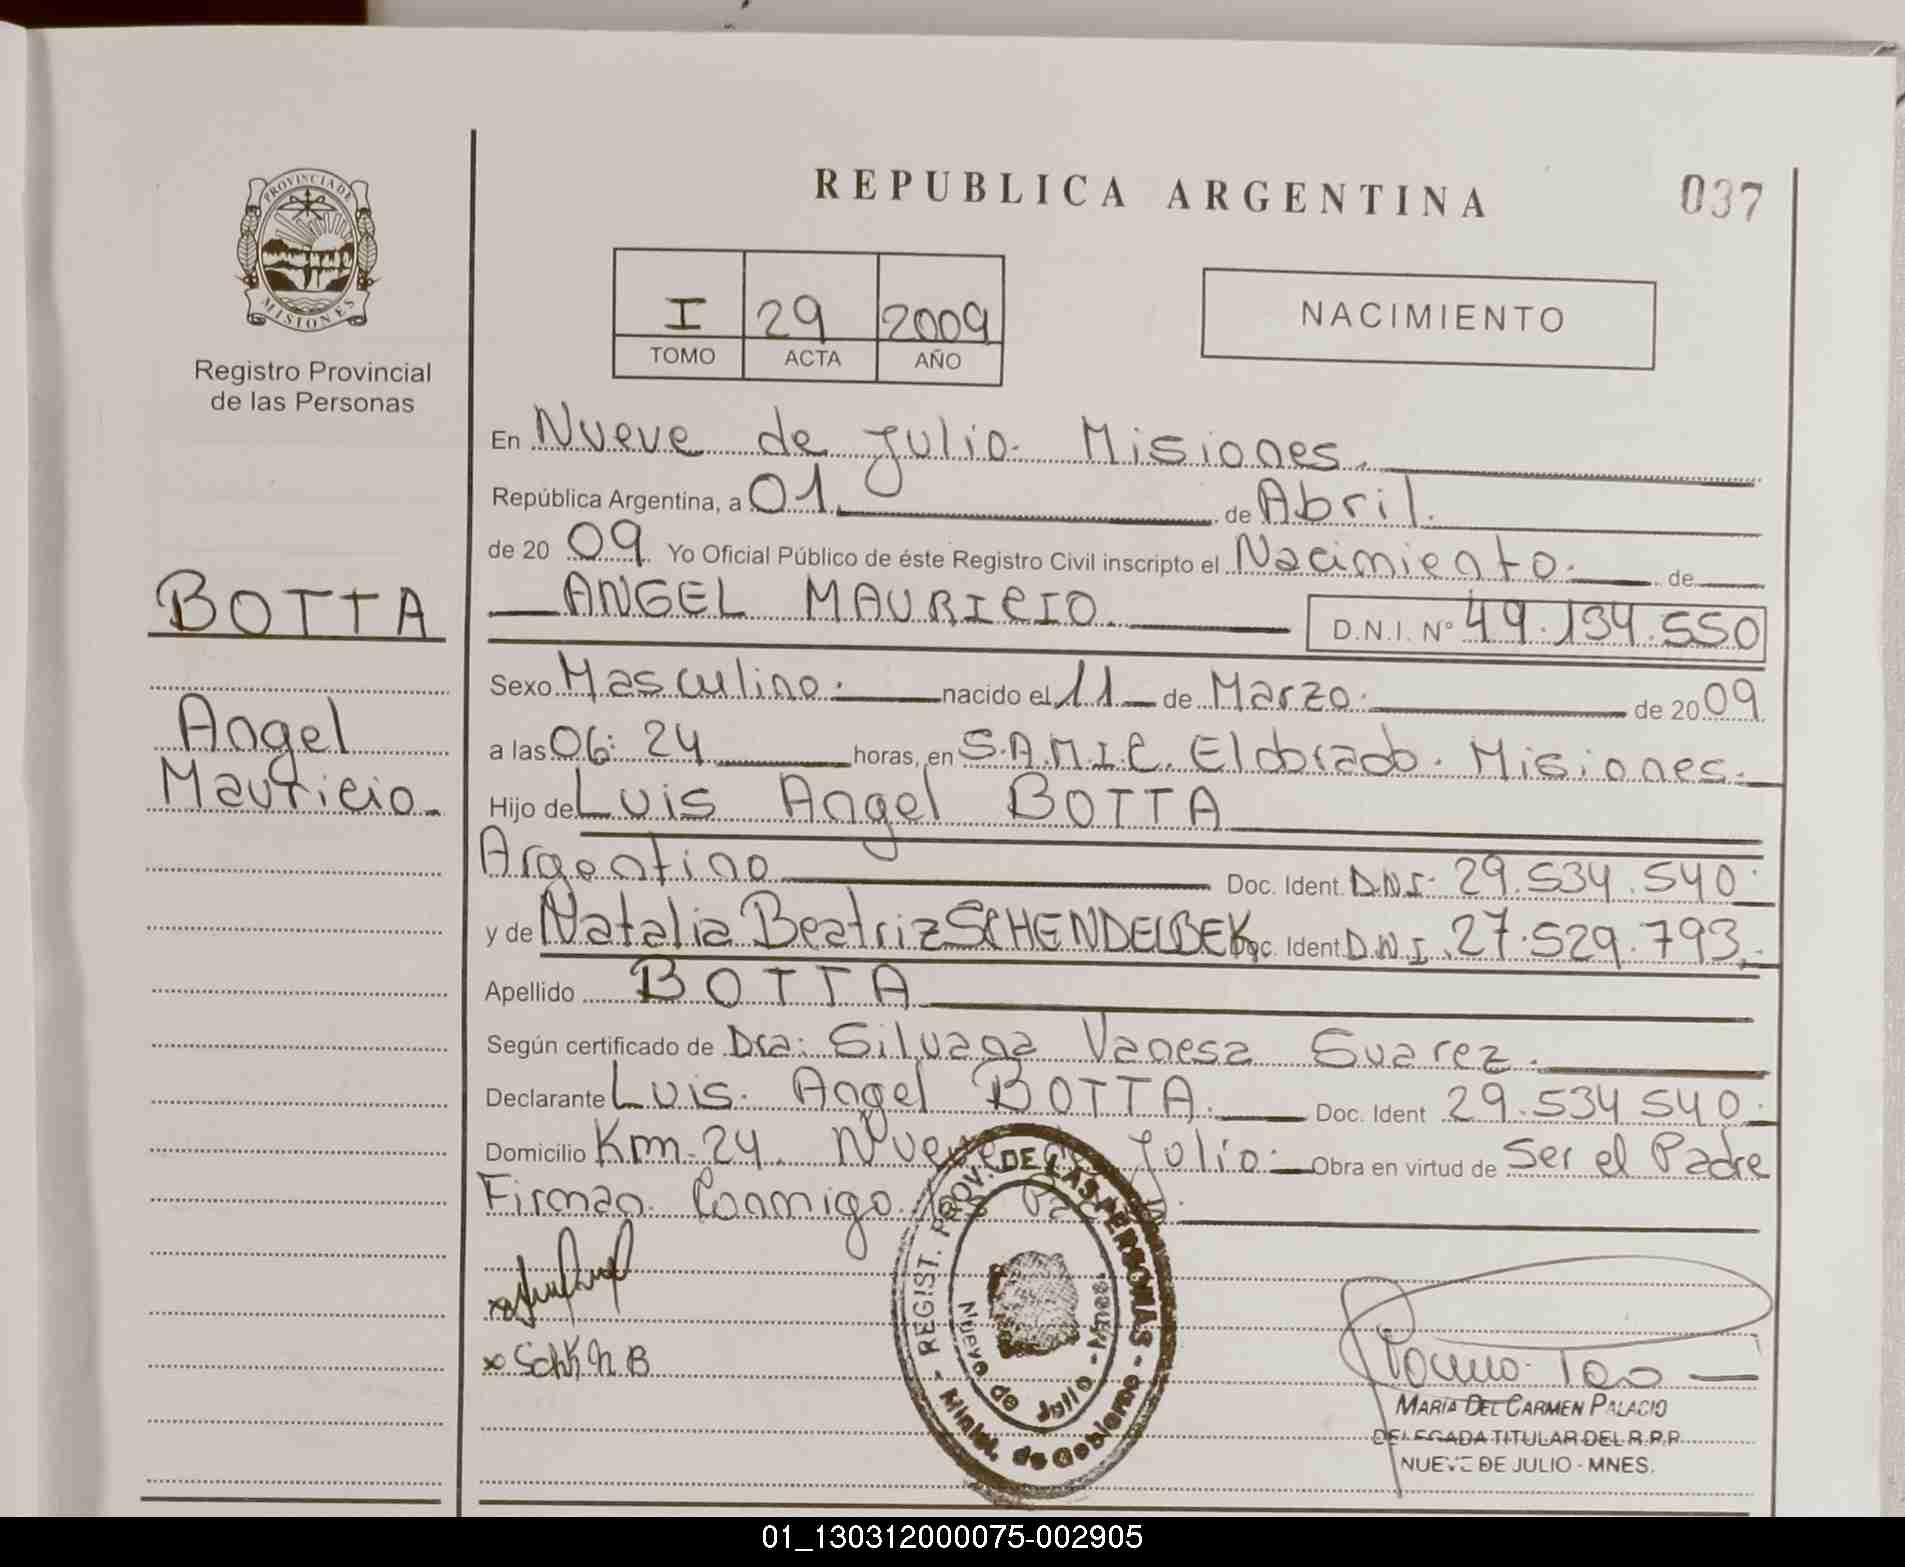 REPUBLICA ARGENTINA
037
PROVINCIA DE
MISIONES
Registro Provincial
de las Personas
I 29 2009
TOMO ACTA AÑO
NACIMIENTO
BOTTA
Angel
Mauricio.
En Nueve de Julio. Misiones.
República Argentina, a 01 de Abril.
de 20 09 Yo Oficial Público de éste Registro Civil inscripto el Nacimiento. de
ANGEL MAURICIO. D.N.I. Nº 49.134.550
Sexo Masculino. nacido el 11 de Marzo. de 20 09
a las 06: 24 horas, en S.A.M.I.C. Eldorado. Misiones.
Hijo de Luis Angel BOTTA
Argentino Doc. Ident. D.N.I. 29.534.540.
y de Natalia Beatriz SCHENDELBEK Doc. Ident. D.N.I. 27.529.793.
Apellido BOTTA
Según certificado de Dra: Silvana Vanesa Suarez.
Declarante Luis. Angel BOTTA. Doc. Ident 29.534 540.
Domicilio Km. 24. Nueve de Julio. Obra en virtud de Ser el Padre
Firman Conmigo.
Schk N B
REGIST. PROV. DE LAS PERSONAS - Minist. de Gobierno -
Nueve de Julio - Mnes.
MARÍA DEL CARMEN PALACIO
DELEGADA TITULAR DEL R.P.P.
NUEVE DE JULIO - MNES.
01_130312000075-002905